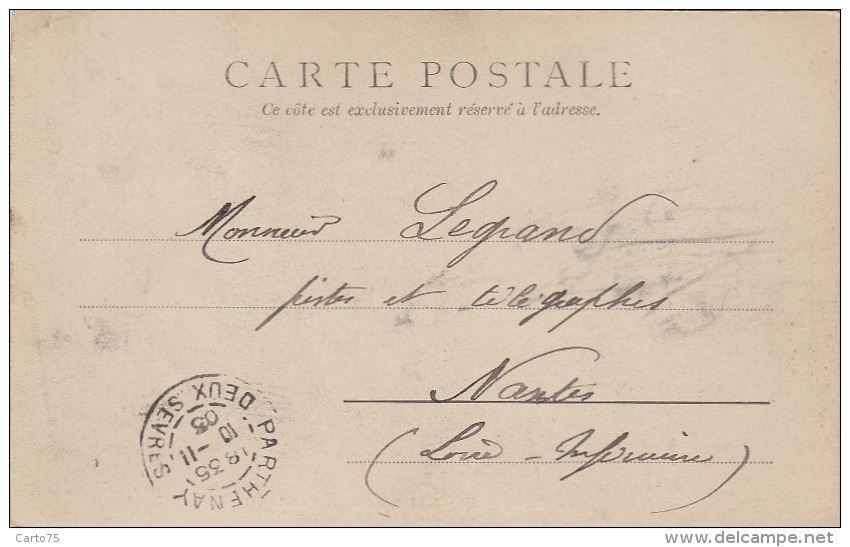 CARTE POSTALE
Ce côte est exclusivement réservé à l'adresse.
Monsieur Legrand
postes et télégraphes
Nantes
(Loire-Inférieure)
PARTHENAY
DEUX SEVRES
18 35
10 -11
03
Carto75
www.delcampe.net